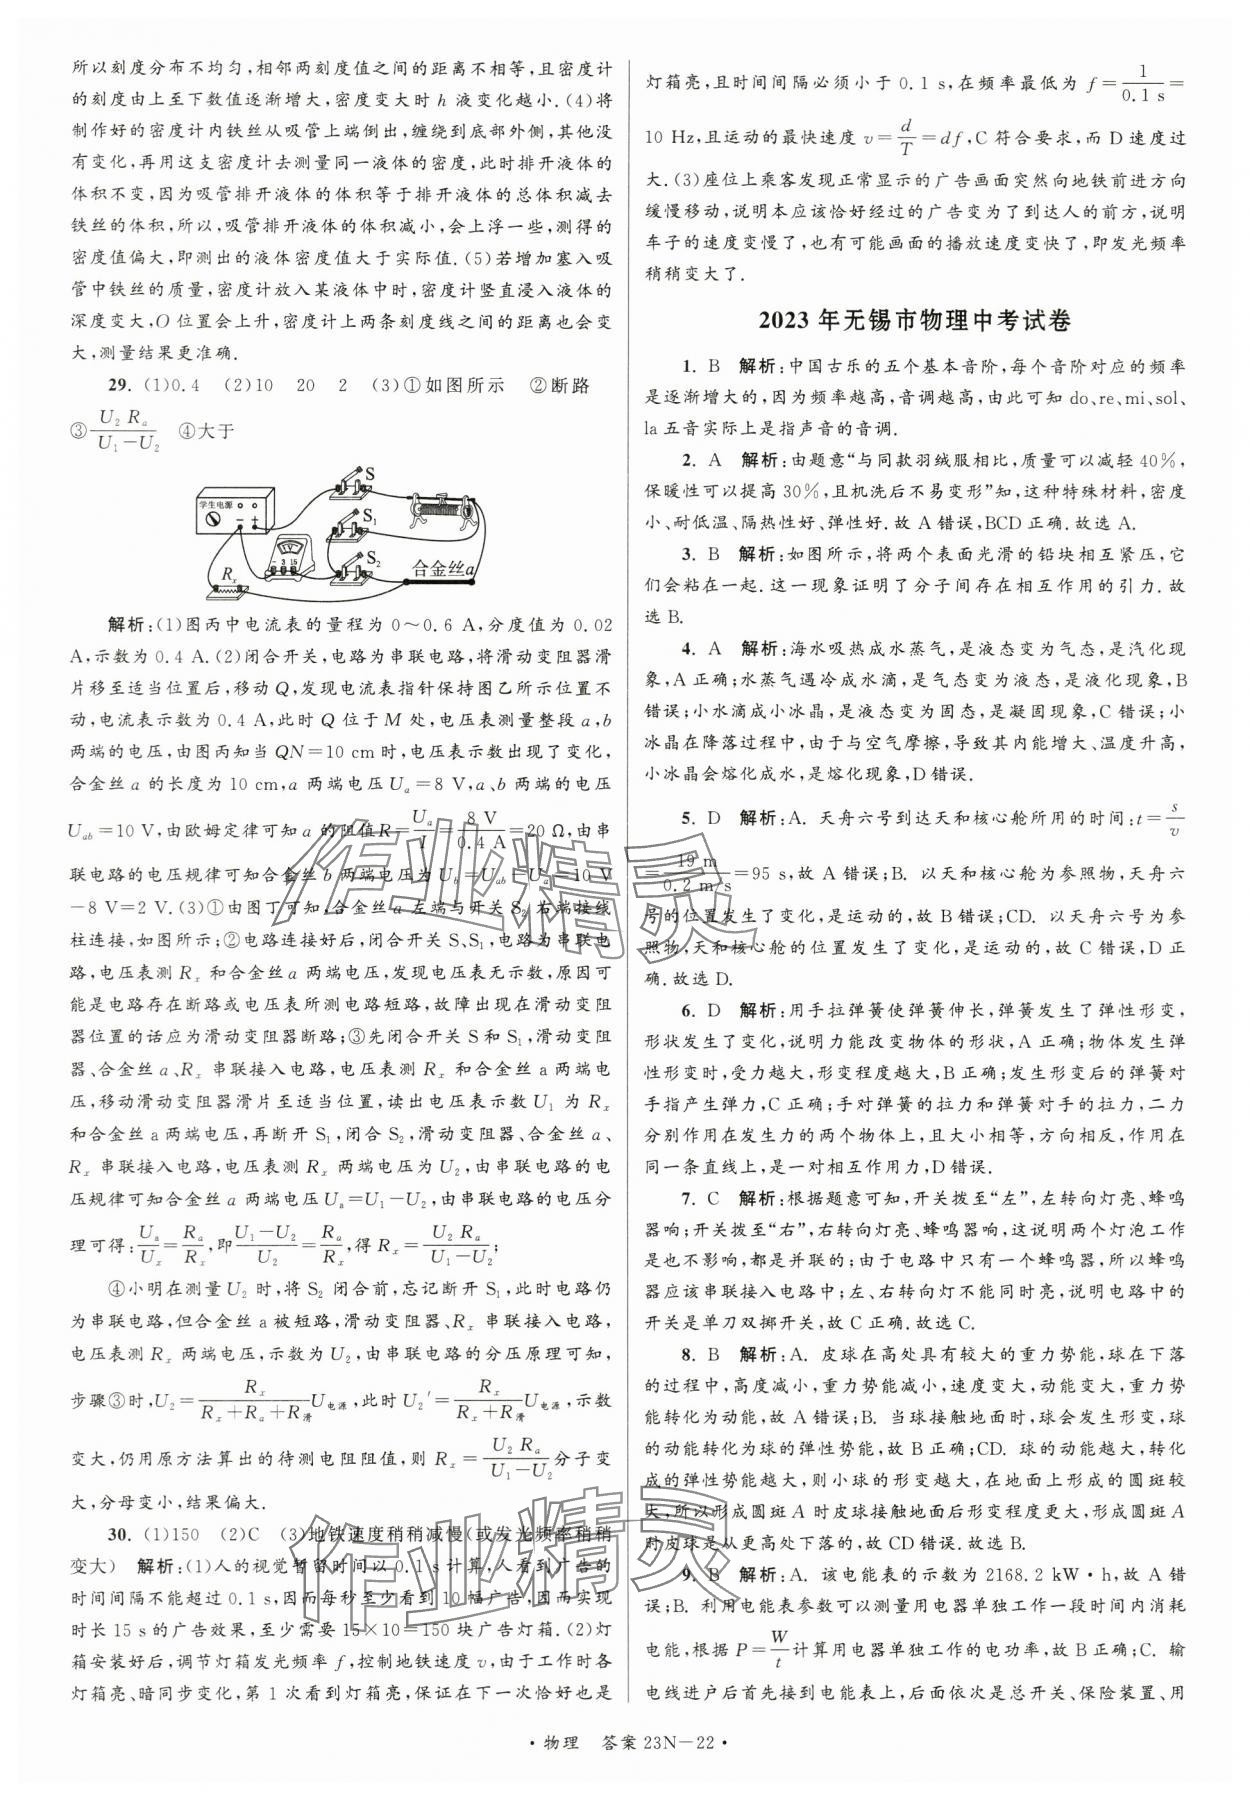 所以刻度分布不均匀,相邻两刻度值之间的距离不相等,且密度计
的刻度由上至下数值逐渐增大,密度变大时 h 液变化越小.(4)将
制作好的密度计内铁丝从吸管上端倒出,缠绕到底部外侧,其他没
有变化,再用这支密度计去测量同一液体的密度,此时排开液体的
体积不变,因为吸管排开液体的体积等于排开液体的总体积减去
铁丝的体积,所以,吸管排开液体的体积减小,会上浮一些,测得的
密度值偏大,即测出的液体密度值大于实际值.(5)若增加塞入吸
管中铁丝的质量,密度计放入某液体中时,密度计竖直浸入液体的
深度变大,O 位置会上升,密度计上两条刻度线之间的距离也会变
大,测量结果更准确.
29. (1)0.4 (2)10 20 2 (3)①如图所示 ②断路
③ U₂ Rₐ / (U₁-U₂) ④大于
学生电源
S
S₁
S₂
V
- 3 15
Rₓ
合金丝a
解析:(1)图丙中电流表的量程为 0~0.6 A,分度值为 0.02
A,示数为 0.4 A.(2)闭合开关,电路为串联电路,将滑动变阻器滑
片移至适当位置后,移动 Q,发现电流表指针保持图乙所示位置不
动,电流表示数为 0.4 A,此时 Q 位于 M 处,电压表测量整段 a,b
两端的电压,由图丙知当 QN=10 cm 时,电压表示数出现了变化,
合金丝 a 的长度为 10 cm,a 两端电压 Uₐ=8 V,a、b 两端的电压
U_ab=10 V,由欧姆定律可知 a 的阻值R=Uₐ/I=8 V/0.4 A=20 Ω,由串
联电路的电压规律可知合金丝 b 两端电压为 U_b=U_ab-Uₐ=10 V
-8 V=2 V.(3)①由图丁可知,合金丝 a 左端与开关 S₂ 右端接线
柱连接,如图所示;②电路连接好后,闭合开关 S、S₁,电路为串联电
路,电压表测 Rₓ 和合金丝 a 两端电压,发现电压表无示数,原因可
能是电路存在断路或电压表所测电路短路,故障出现在滑动变阻
器位置的话应为滑动变阻器断路;③先闭合开关 S 和 S₁,滑动变阻
器、合金丝 a、Rₓ 串联接入电路,电压表测 Rₓ 和合金丝 a 两端电
压,移动滑动变阻器滑片至适当位置,读出电压表示数 U₁ 为 Rₓ
和合金丝 a 两端电压,再断开 S₁,闭合 S₂,滑动变阻器、合金丝 a、
Rₓ 串联接入电路,电压表测 Rₓ 两端电压为 U₂,由串联电路的电
压规律可知合金丝 a 两端电压 Uₐ=U₁-U₂,由串联电路的电压分
理可得:Uₐ/Uₓ=Rₐ/Rₓ,即(U₁-U₂)/U₂=Rₐ/Rₓ,得 Rₓ=U₂ Rₐ/(U₁-U₂);
④小明在测量 U₂ 时,将 S₂ 闭合前,忘记断开 S₁,此时电路仍
为串联电路,但合金丝 a 被短路,滑动变阻器、Rₓ 串联接入电路,
电压表测 Rₓ 两端电压,示数为 U₂,由串联电路的分压原理可知,
步骤③时,U₂=Rₓ/(Rₓ+Rₐ+R滑)U电源,此时 U₂′=Rₓ/(Rₓ+R滑)U电源,示数
变大,仍用原方法算出的待测电阻阻值,则 Rₓ=U₂ Rₐ/(U₁-U₂)分子变
大,分母变小,结果偏大.
30. (1)150 (2)C (3)地铁速度稍稍减慢(或发光频率稍稍
变大) 解析:(1)人的视觉暂留时间以 0.1 s 计算,人看到广告的
时间间隔不能超过 0.1 s,因而每秒至少看到 10 幅广告,因而实现
时长 15 s 的广告效果,至少需要 15×10=150 块广告灯箱.(2)灯
箱安装好后,调节灯箱发光频率 f,控制地铁速度 v,由于工作时各
灯箱亮、暗同步变化,第 1 次看到灯箱亮,保证在下一次恰好也是
灯箱亮,且时间间隔必须小于 0.1 s,在频率最低为 f=1/0.1 s=
10 Hz,且运动的最快速度 v=d/T=df,C 符合要求,而 D 速度过
大.(3)座位上乘客发现正常显示的广告画面突然向地铁前进方向
缓慢移动,说明本应该恰好经过的广告变为了到达人的前方,说明
车子的速度变慢了,也有可能画面的播放速度变快了,即发光频率
稍稍变大了.
2023 年无锡市物理中考试卷
1. B 解析:中国古乐的五个基本音阶,每个音阶对应的频率
是逐渐增大的,因为频率越高,音调越高,由此可知 do、re、mi、sol、
la 五音实际上是指声音的音调.
2. A 解析:由题意“与同款羽绒服相比,质量可以减轻 40%,
保暖性可以提高 30%,且机洗后不易变形”知,这种特殊材料,密度
小、耐低温、隔热性好、弹性好.故 A 错误,BCD 正确.故选 A.
3. B 解析:如图所示,将两个表面光滑的铅块相互紧压,它
们会粘在一起.这一现象证明了分子间存在相互作用的引力.故
选 B.
4. A 解析:海水吸热成水蒸气,是液态变为气态,是汽化现
象,A 正确;水蒸气遇冷成水滴,是气态变为液态,是液化现象,B
错误;小水滴成小冰晶,是液态变为固态,是凝固现象,C 错误;小
冰晶在降落过程中,由于与空气摩擦,导致其内能增大、温度升高,
小冰晶会熔化成水,是熔化现象,D 错误.
5. D 解析:A. 天舟六号到达天和核心舱所用的时间:t=s/v
=19 m/0.2 m/s=95 s,故 A 错误;B. 以天和核心舱为参照物,天舟六
号的位置发生了变化,是运动的,故 B 错误;CD. 以天舟六号为参
照物,天和核心舱的位置发生了变化,是运动的,故 C 错误,D 正
确.故选 D.
6. D 解析:用手拉弹簧使弹簧伸长,弹簧发生了弹性形变,
形状发生了变化,说明力能改变物体的形状,A 正确;物体发生弹
性形变时,受力越大,形变程度越大,B 正确;发生形变后的弹簧对
手指产生弹力,C 正确;手对弹簧的拉力和弹簧对手的拉力,二力
分别作用在发生力的两个物体上,且大小相等,方向相反,作用在
同一条直线上,是一对相互作用力,D 错误.
7. C 解析:根据题意可知,开关拨至“左”,左转向灯亮、蜂鸣
器响;开关拨至“右”,右转向灯亮、蜂鸣器响,这说明两个灯泡工作
是也不影响,都是并联的;由于电路中只有一个蜂鸣器,所以蜂鸣
器应该串联接入电路中;左、右转向灯不能同时亮,说明电路中的
开关是单刀双掷开关,故 C 正确.故选 C.
8. B 解析:A. 皮球在高处具有较大的重力势能,球在下落
的过程中,高度减小,重力势能减小,速度变大,动能变大,重力势
能转化为动能,故 A 错误;B. 当球接触地面时,球会发生形变,球
的动能转化为球的弹性势能,故 B 正确;CD. 球的动能越大,转化
成的弹性势能越大,则小球的形变越大,在地面上形成的圆斑较
大,所以形成圆斑 A 时皮球接触地面后形变程度更大,形成圆斑 A
时皮球是从更高处下落的,故 CD 错误.故选 B.
9. B 解析:A. 该电能表的示数为 2168.2 kW·h,故 A 错
误;B. 利用电能表参数可以测量用电器单独工作一段时间内消耗
电能,根据 P=W/t计算用电器单独工作的电功率,故 B 正确;C. 输
电线进户后首先接到电能表上,后面依次是总开关、保险装置、用
·物理 答案 23N-22·
作业精灵
作业精灵